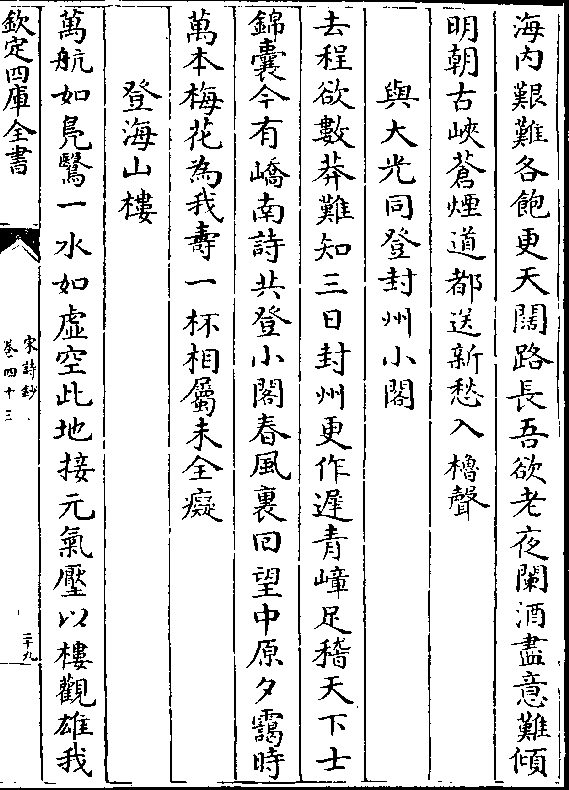 海内艱難各飽更天闊路長吾欲老夜闌酒盡意難傾
明朝古峽蒼煙道都送新愁入櫓聲
與大光同登封州小閣
去程欲數莽難知三日封州更作遲青嶂足稽天下士
錦囊今有嶠南詩共登小閣春風裏回望中原夕靄時
萬本梅花為我壽一杯相屬未全癡
登海山樓
萬航如鳬鷖一水如虛空此地接元氣壓以樓觀雄我
欽定四庫全書
宋詩鈔
卷四十三
二十九